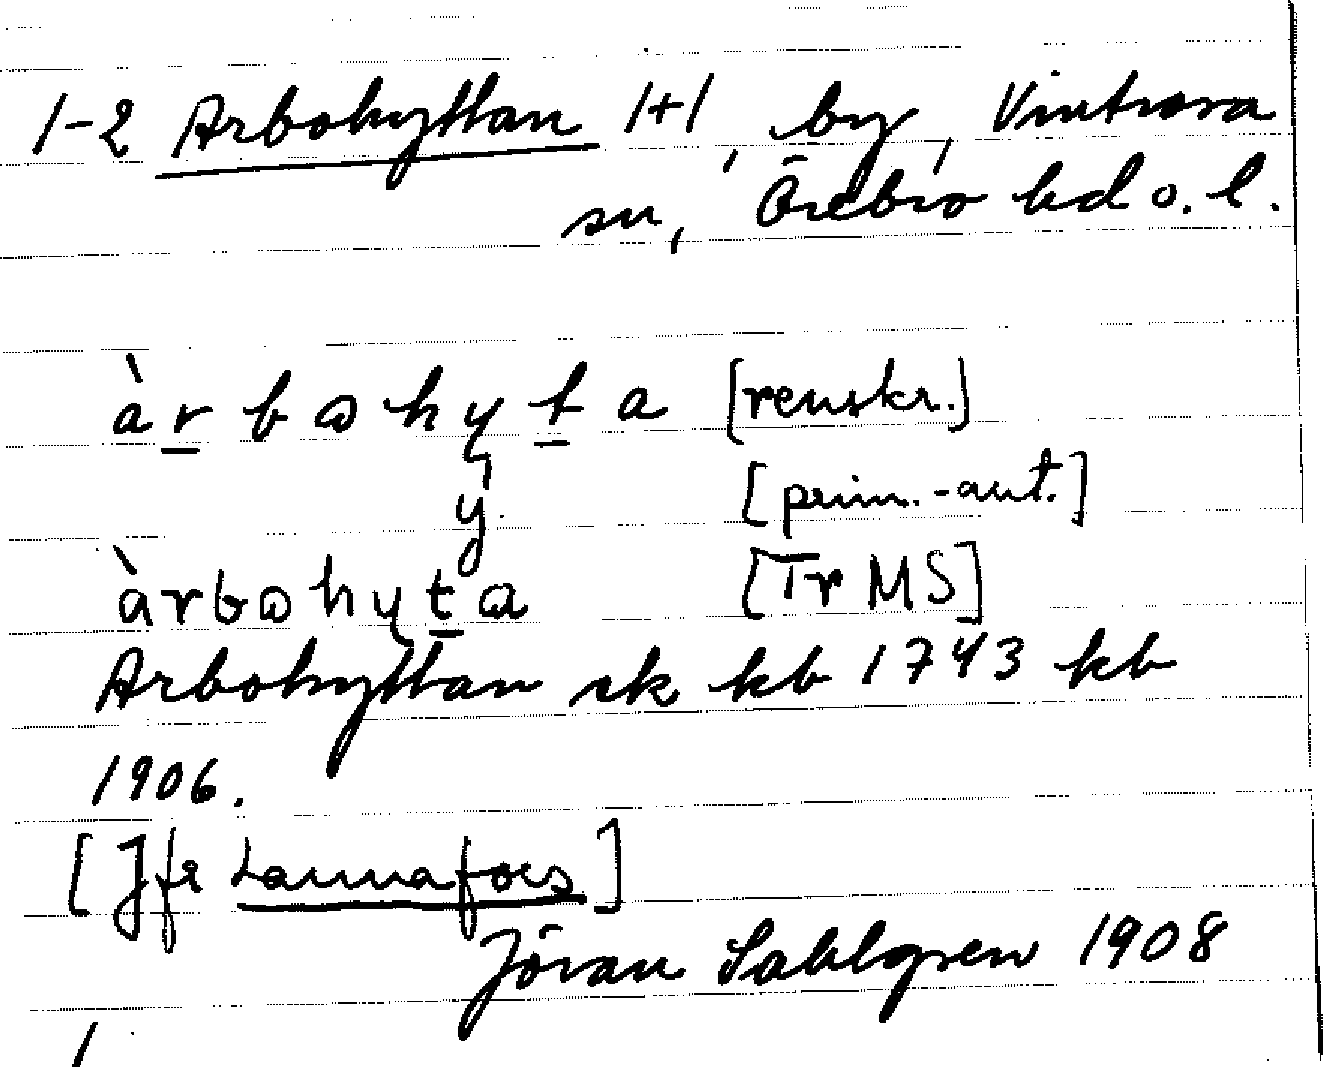 1-2 Arbohyttan 1+1, by, Vintrosa
sn, Örebro hd o. l.
àrbωhyta [renskr.]
ẏ [prim.-ant.]
àrbωhyta [Tr MS]
Arbohyttan sk kb 1743 kb
1906.
[Jfr Lannafors]
Jöran Sahlgren 1908
1